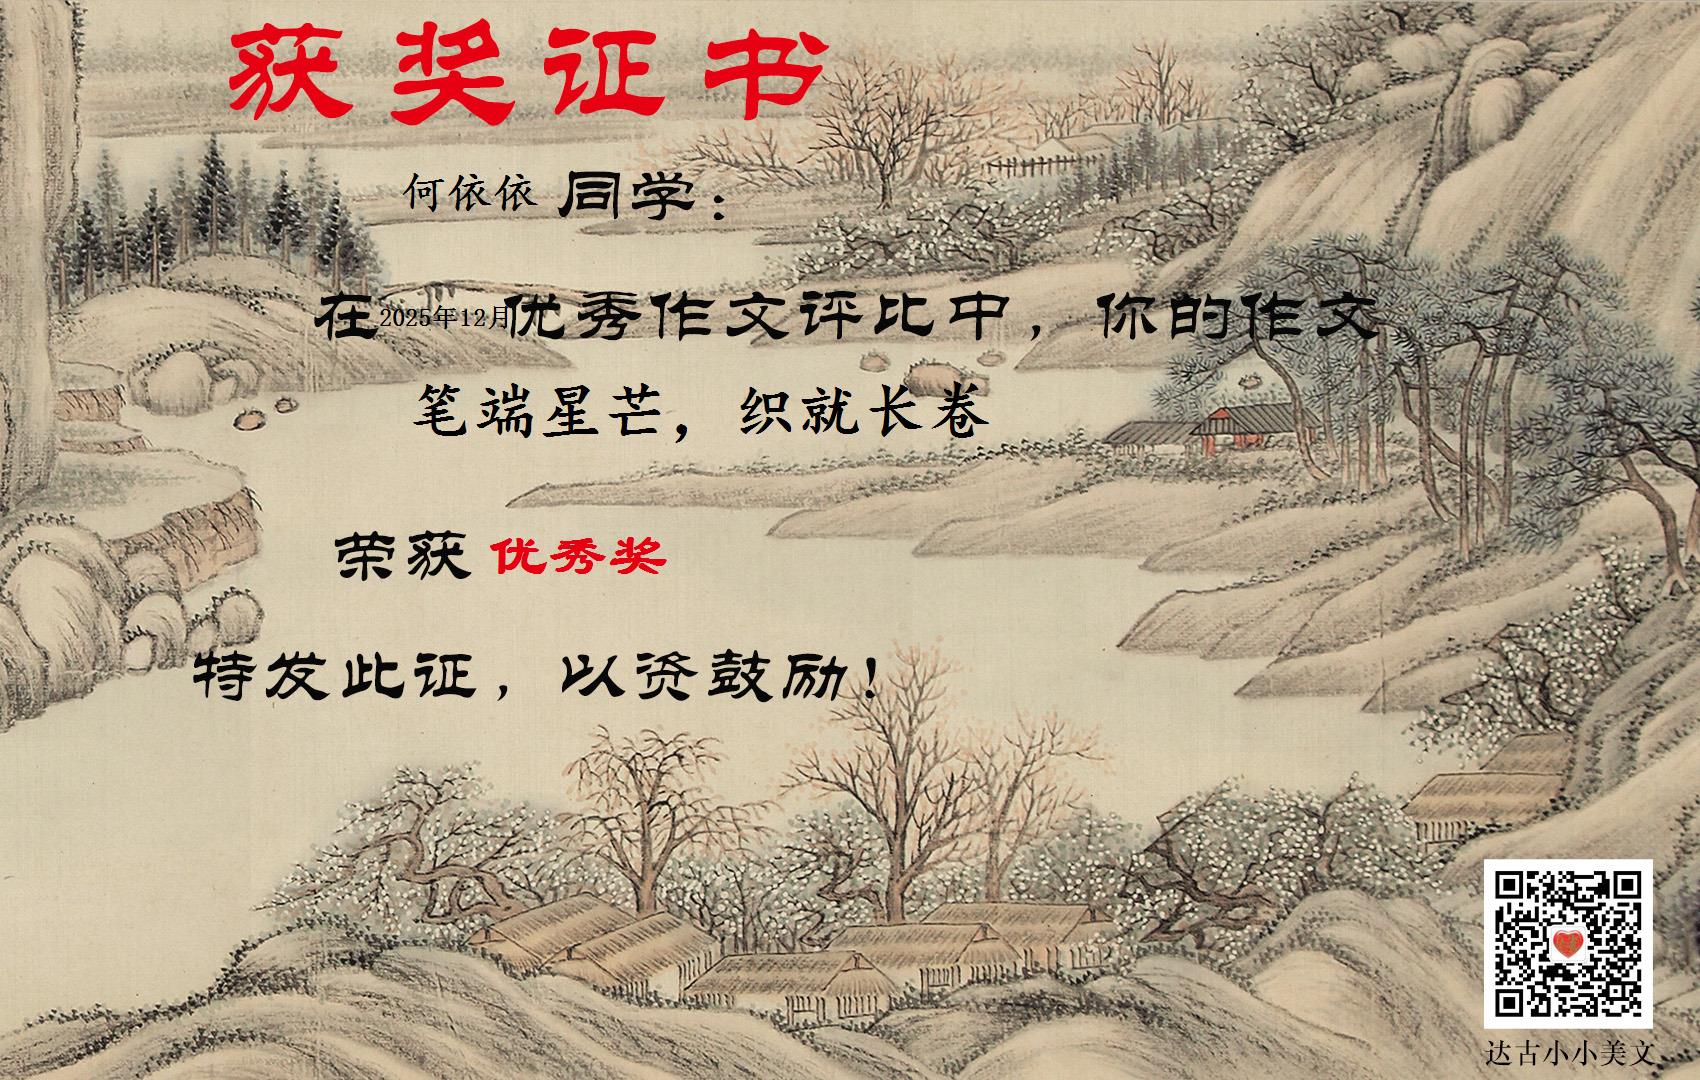 获奖证书
何依依 同学：
在2025年12月优秀作文评比中，你的作文
笔端星芒，织就长卷
荣获 优秀奖
特发此证，以资鼓励！
达古小小美文